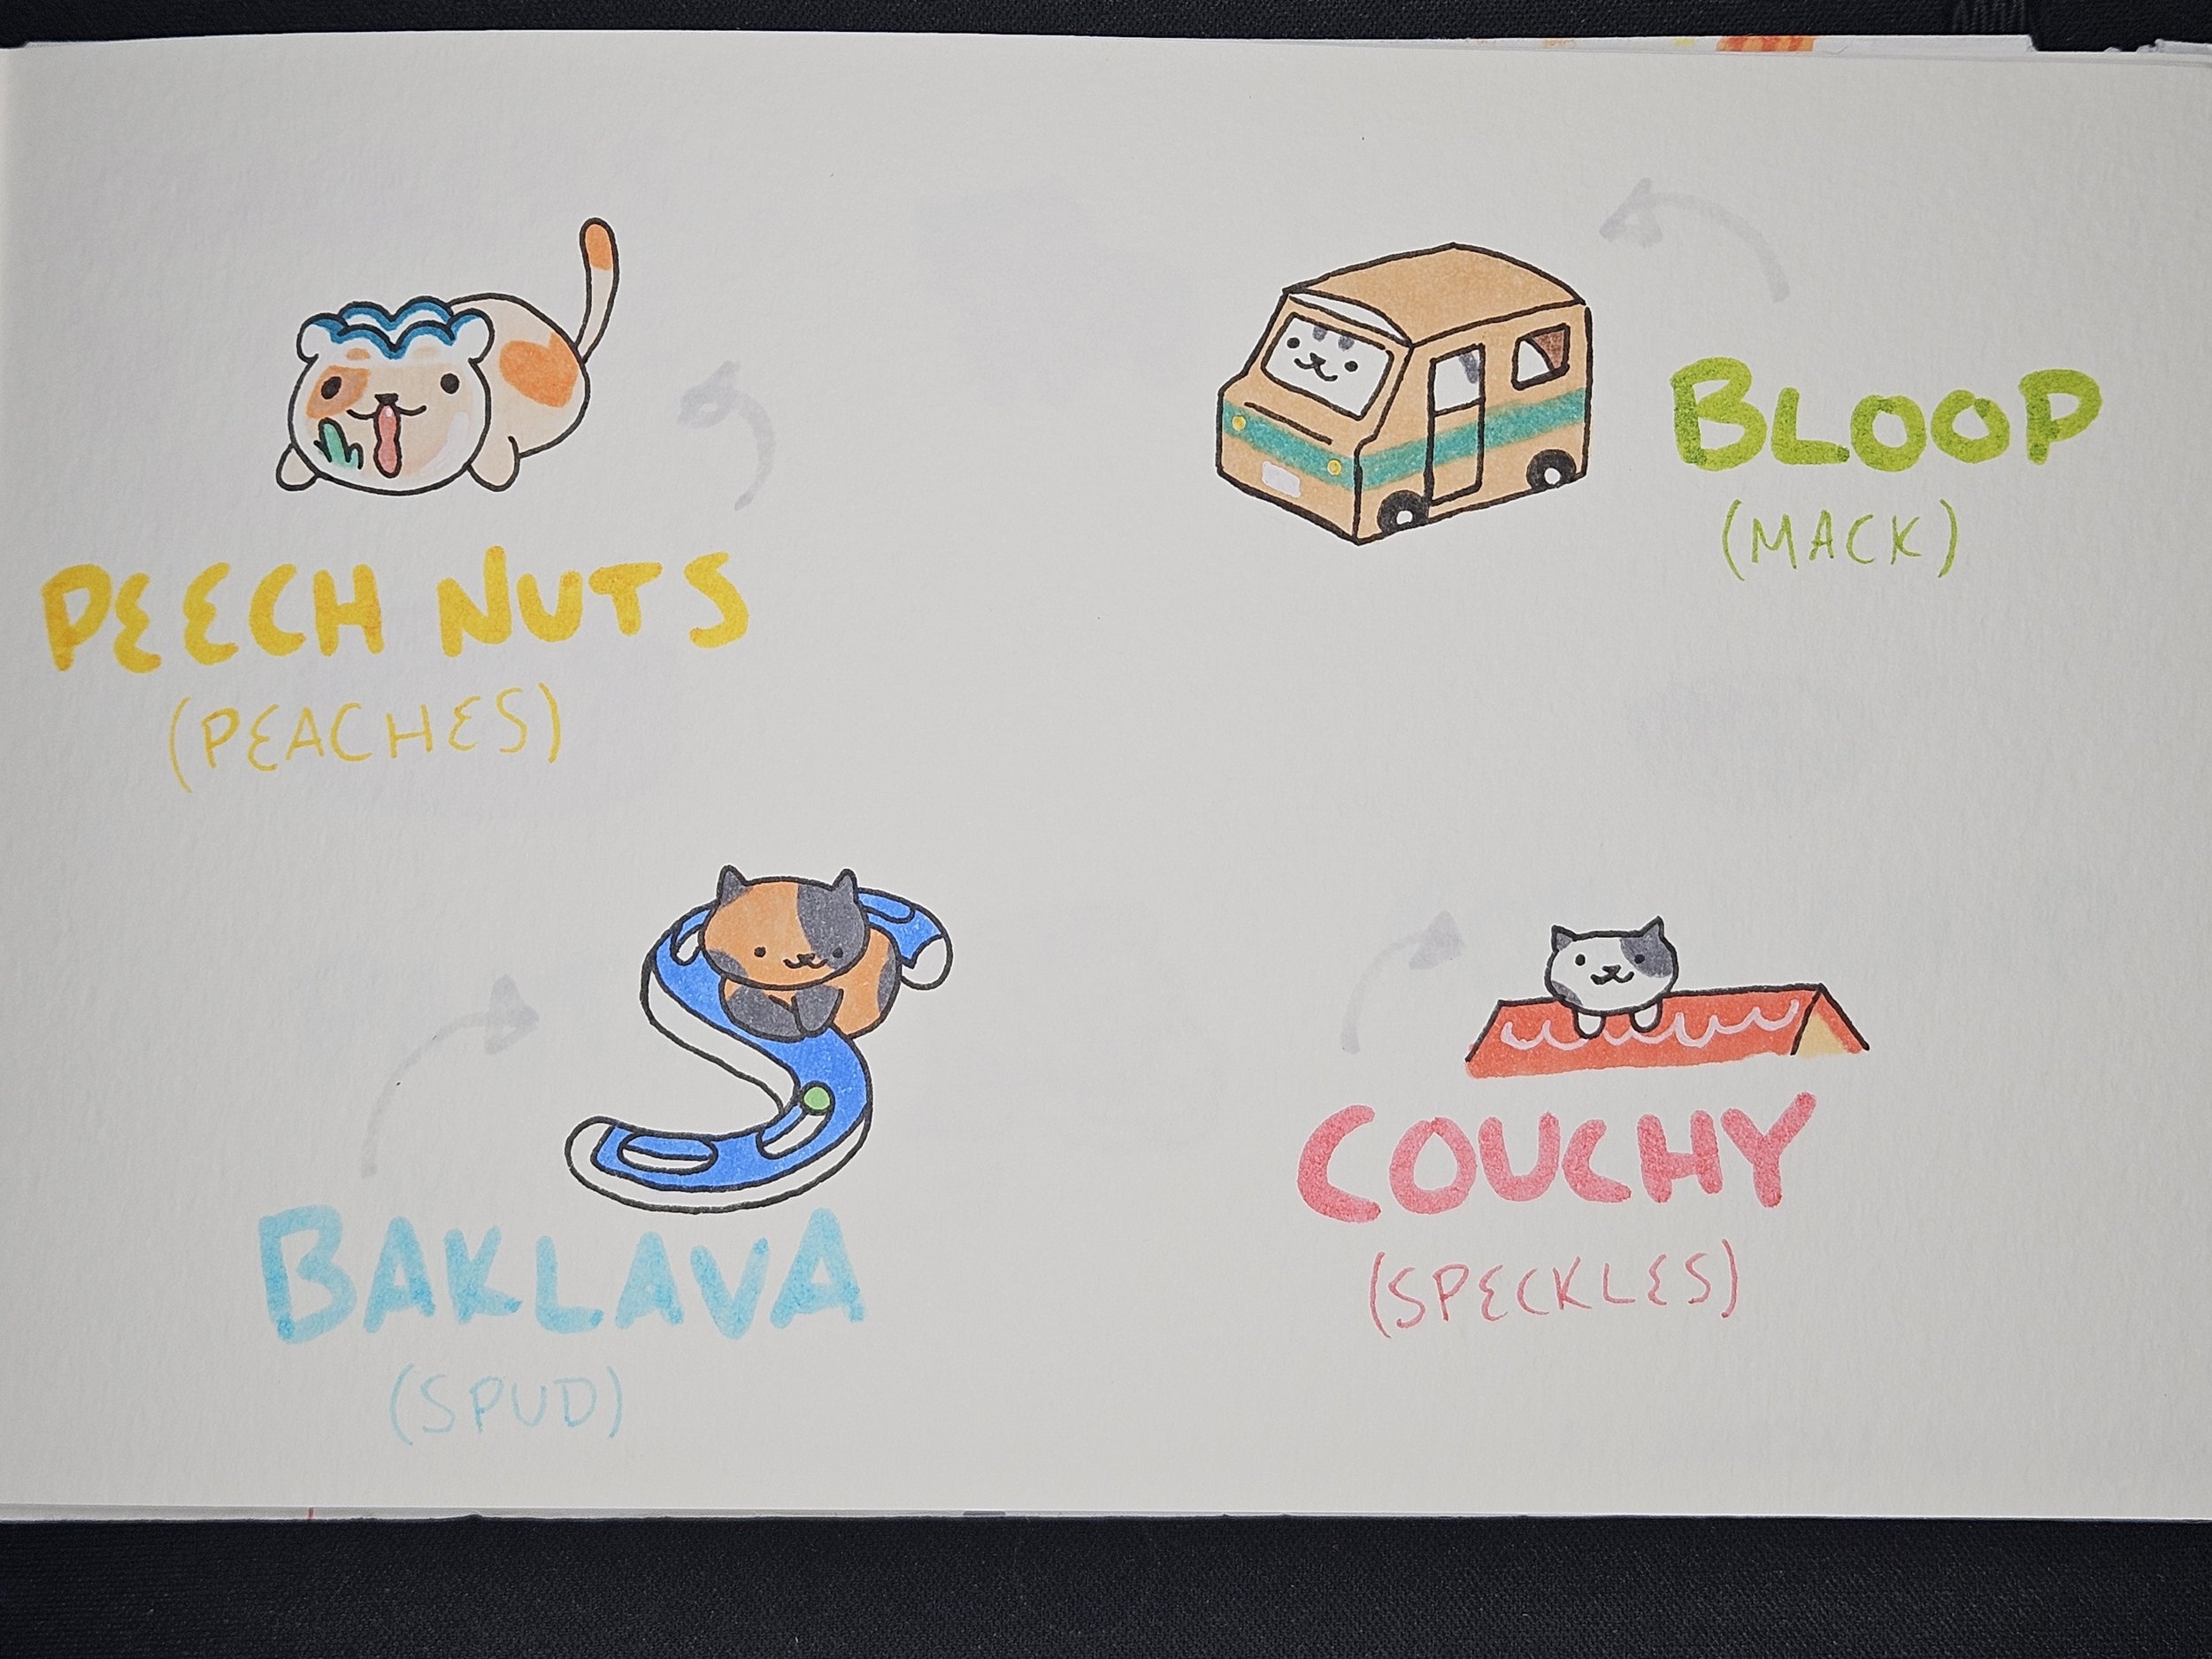 PEECH NUTS
(PEACHES)
BLOOP
(MACK)
BAKLAVA
(SPUD)
COUCHY
(SPECKLES)